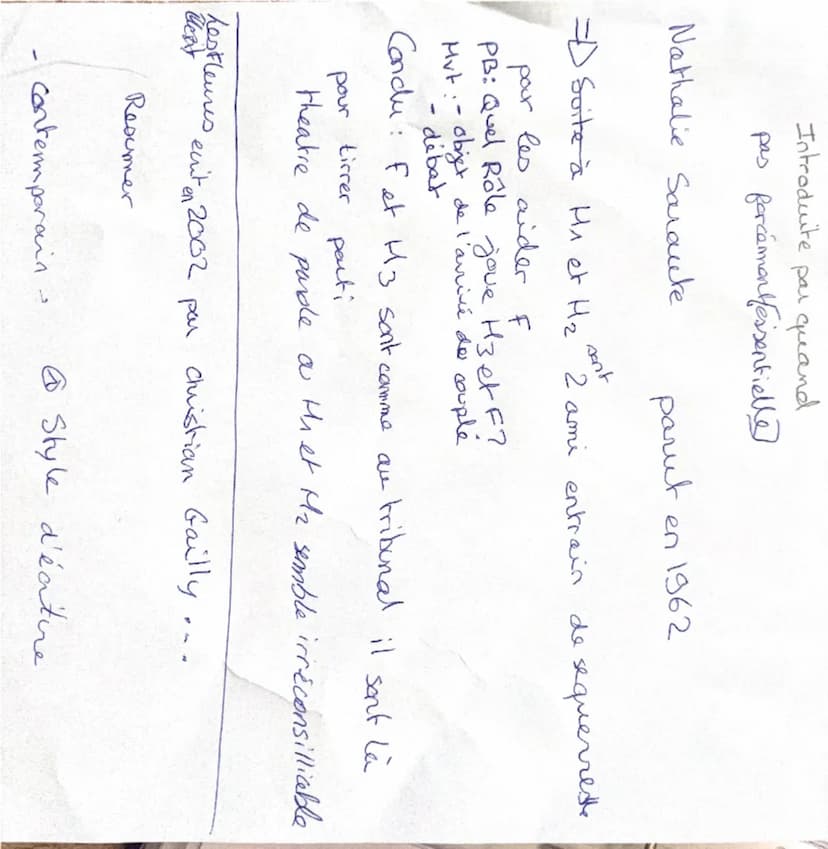 Introduite par quand
pas forcément essentielle
Nathalie Saraute parut en 1962
=> Suite à H1 et H2 sont 2 ami entrain de se querreste
pour les aider F
PB: Quel Rôle joue H3 et F?
Mvt: - objet de l'arrivé du couple
- débat
Conclu: F et H3 sont comme au tribunal il sont là
pour tirrer parti
Theatre de parole a H1 et H2 semble irréconsilliable
Les fleures ecrit en 2002 par Christian Gailly ...
Resumer
- contemporain → Style d'écriture